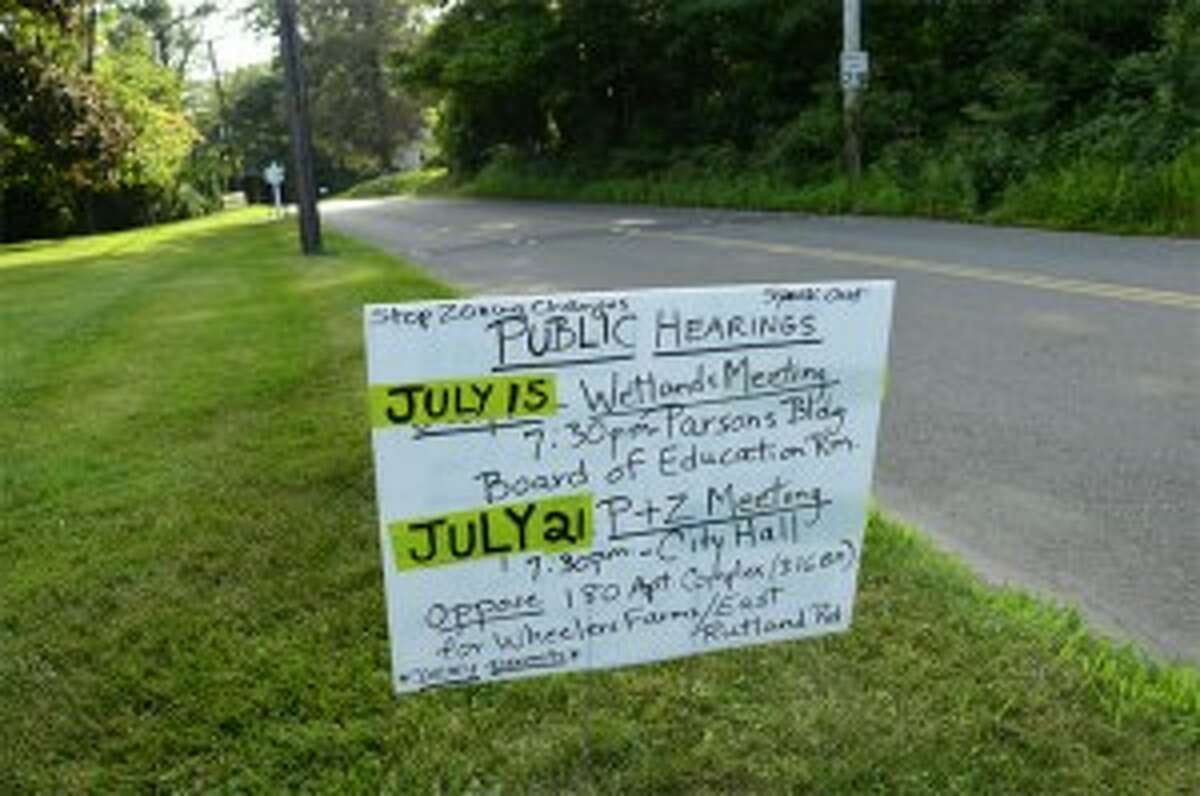 Stop Zoning Changes Speak Out
PUBLIC HEARINGS
JULY 15 - Wetlands Meeting
7.30pm - Parsons Bldg
Board of Education Rm.
JULY 21 P+Z Meeting
7.30pm - City Hall
oppose 180 Apt. Complex/(316 BR)
for Wheelers Farms/East
Rutland Rd